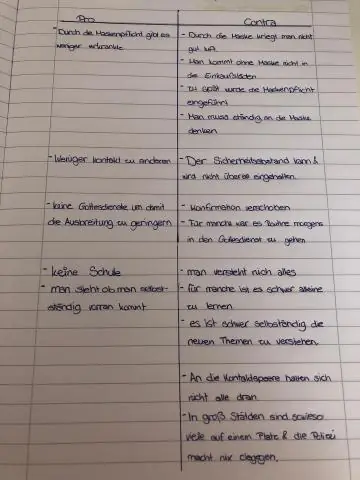 Pro
Contra
- Durch die Maskenpflicht gibt es
weniger erkrankte
- Durch die Maske kriegt man nicht
gut Luft.
- Man kommt ohne Maske nicht in
die Einkaufsläden
- zu spät wurde die Maskenpflicht
eingeführt
- Man muss ständig an die Maske
denken
- Weniger Kontakt zu anderen
- Der Sicherheitsabstand kann &
wird nicht überall eingehalten.
- keine Gottesdienste um damit
die Ausbreitung zu geringern
- Konfirmation verschoben
- Für manche war es Routine morgens
in den Gottesdienst zu gehen
- keine Schule
- man sieht ob man selbst-
ständig voran kommt
- man versteht nich alles
- für manche ist es schwer alleine
zu lernen
- es ist schwer selbständig die
neuen Themen zu verstehen.
- An die Kontaktsperre halten sich
nicht alle dran
- In groß Städten sind sowieso
viele auf einem Platz & die Polizei
macht nix dagegen.